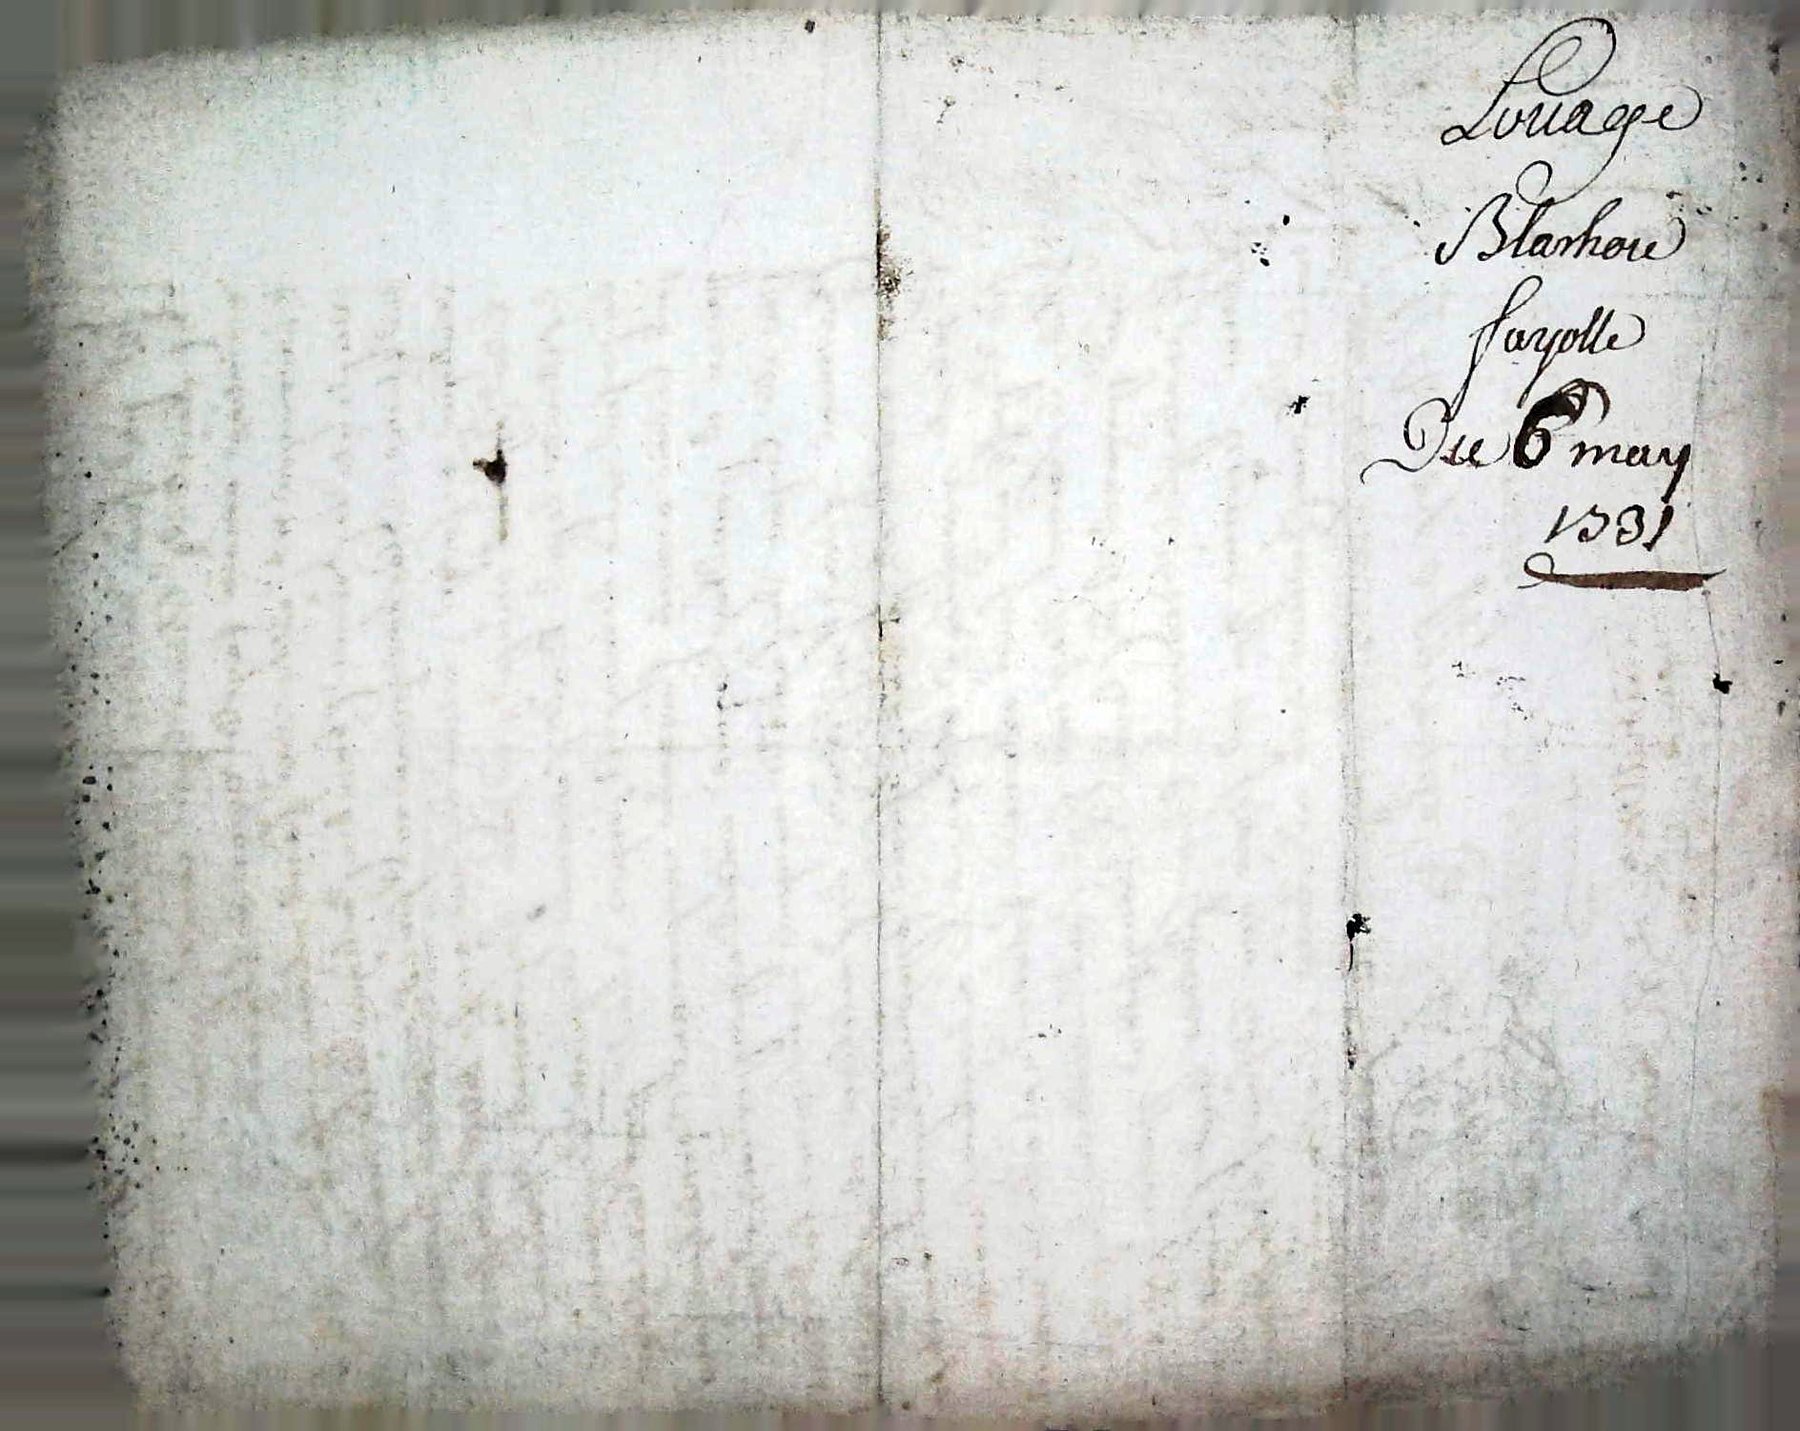 Louage
Blanhou
fayolle
Du 6 may
1731